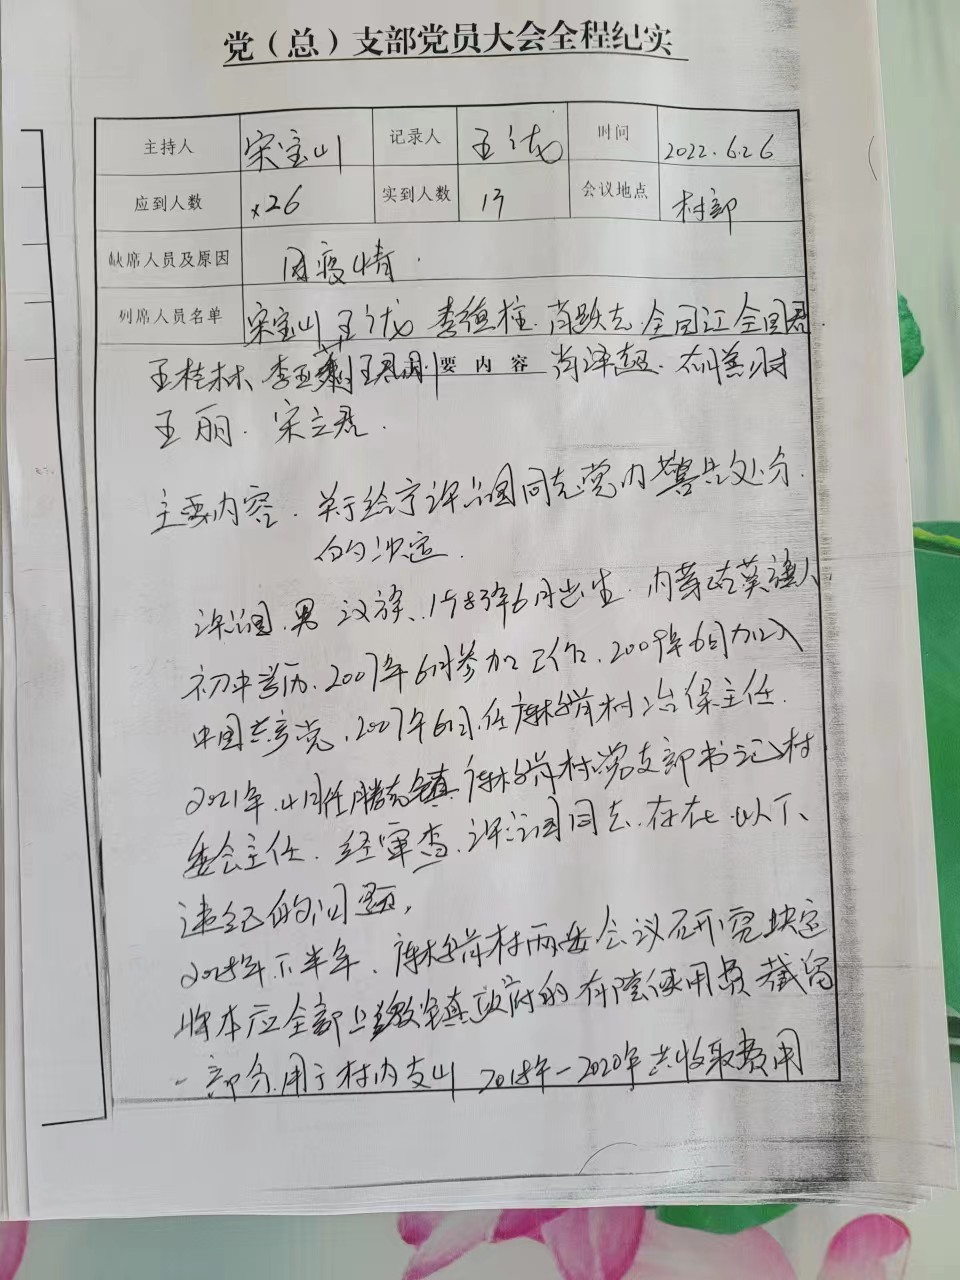 党（总）支部党员大会全程纪实
主持人 宋宝山 记录人 王 时间 2022.6.26
应到人数 26 实到人数 13 会议地点 村部
缺席人员及原因 因疫情.
列席人员名单 宋宝山 王 李德柱. 肖跃志. 全国江 全国君
王桂林 李亚 王 主要内容 肖泽超.
王丽. 宋立君.
主要内容. 关于给予许治国同志党内警告处分.
的决定.
许治国. 男 汉族、1983年6月出生. 内蒙古莫旗人
初中学历. 2007年6月参加工作. 2009年6月加入
中国共产党. 2007年6月任 村治保主任.
2021年.4月任腾克镇 村党支部书记村
委会主任. 经审查. 许治国同志. 存在以下、
违纪的问题,
年下半年. 村两委会议研究决定
将本应全部上缴镇政府的有偿使用费截留
一部分.用于村内支出 2018年-2020年共收取费用